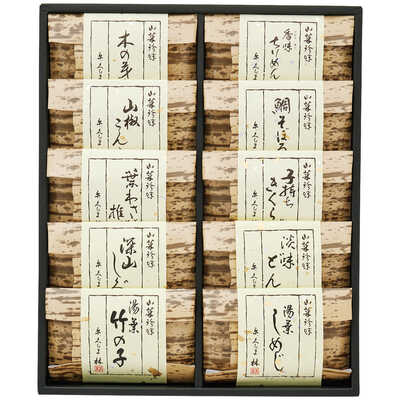 山菜珍味
木の芽
山菜珍味
山椒
こん
山菜珍味
葉わさ
椎
山菜珍味
深山
し
山菜珍味
湯葉
竹の子
林
山菜珍味
香味
ちりめん
山菜珍味
鯛そぼろ
山菜珍味
子持ち
きくら
山菜珍味
淡味
どん
山菜珍味
湯葉
しめじ
林